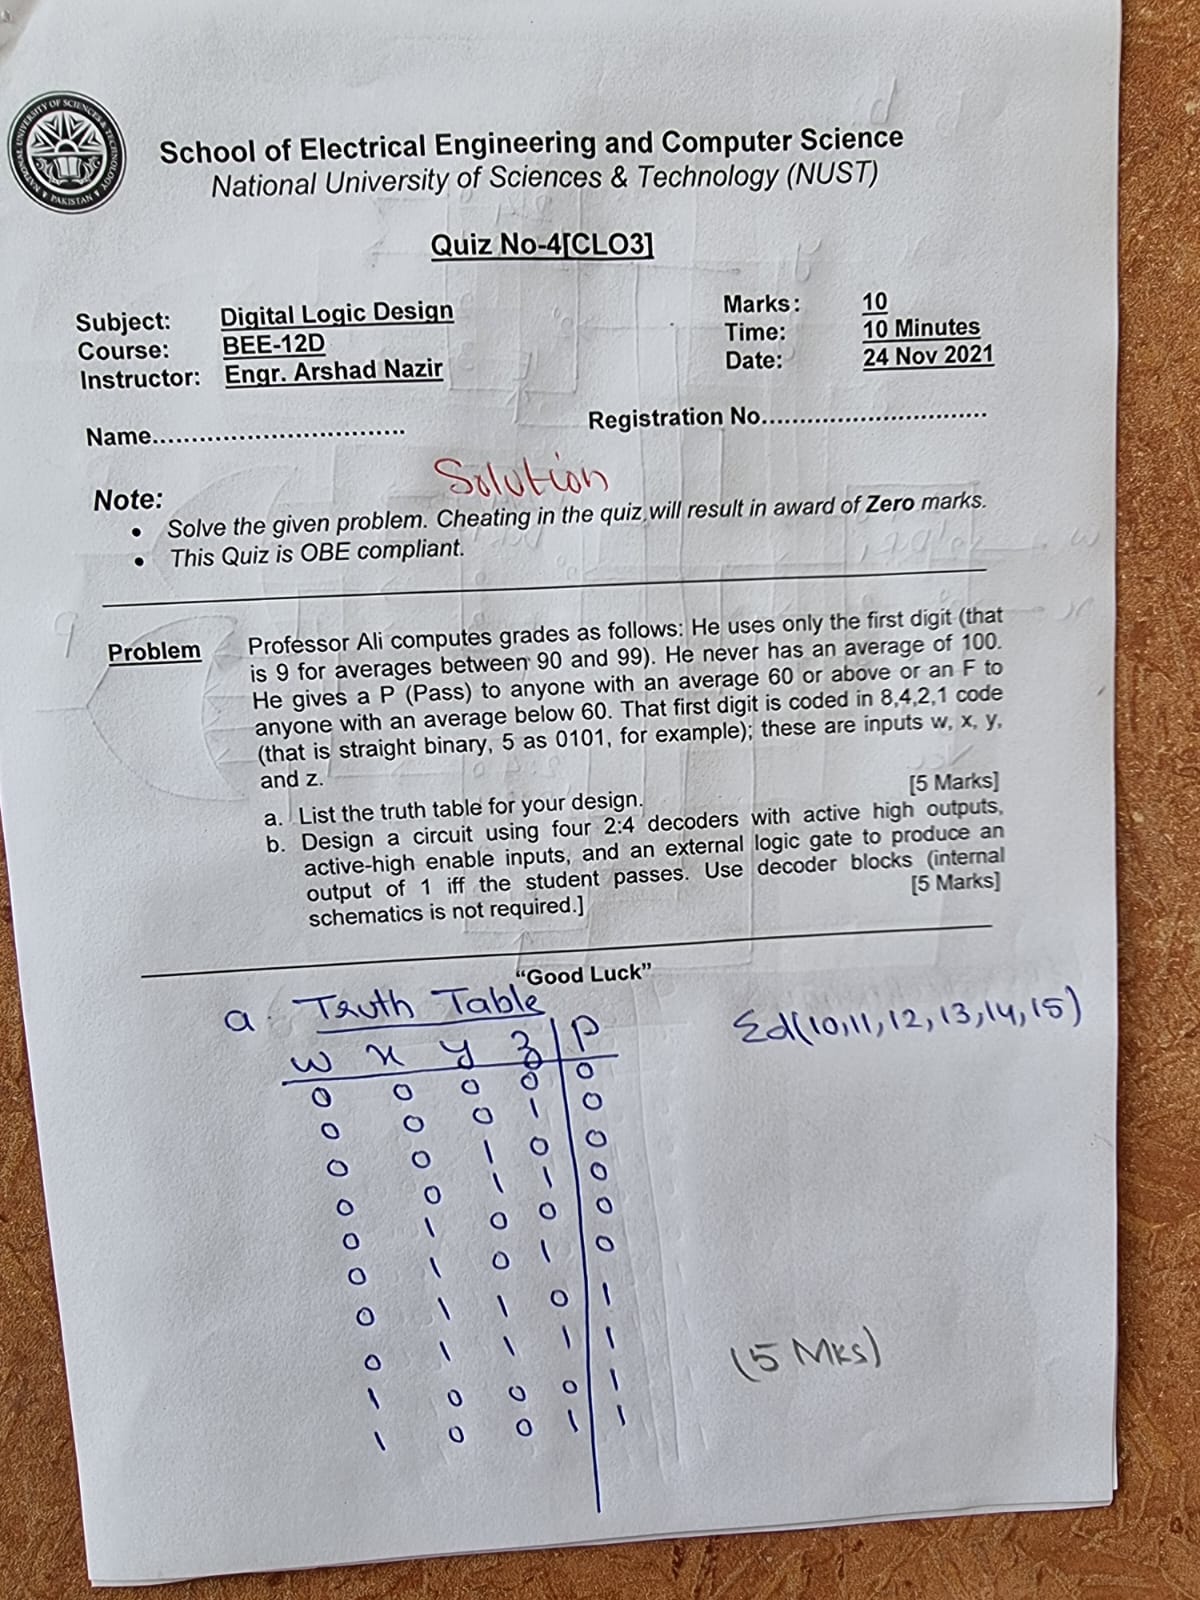 NATIONAL UNIVERSITY OF SCIENCES & TECHNOLOGY
PAKISTAN
School of Electrical Engineering and Computer Science
National University of Sciences & Technology (NUST)
Quiz No-4[CLO3]
Subject: Digital Logic Design Marks: 10
Course: BEE-12D Time: 10 Minutes
Instructor: Engr. Arshad Nazir Date: 24 Nov 2021
Name................................ Registration No.............................
Solution
Note:
• Solve the given problem. Cheating in the quiz will result in award of Zero marks.
• This Quiz is OBE compliant.
Problem Professor Ali computes grades as follows: He uses only the first digit (that
is 9 for averages between 90 and 99). He never has an average of 100.
He gives a P (Pass) to anyone with an average 60 or above or an F to
anyone with an average below 60. That first digit is coded in 8,4,2,1 code
(that is straight binary, 5 as 0101, for example); these are inputs w, x, y,
and z.
a. List the truth table for your design. [5 Marks]
b. Design a circuit using four 2:4 decoders with active high outputs,
active-high enable inputs, and an external logic gate to produce an
output of 1 iff the student passes. Use decoder blocks (internal
schematics is not required.] [5 Marks]
“Good Luck”
a. Truth Table Σd(10,11,12,13,14,15)
w x y z P
0 0 0 0 0
0 0 0 1 0
0 0 1 0 0
0 0 1 1 0
0 1 0 0 0
0 1 0 1 0
0 1 1 0 1
0 1 1 1 1
1 0 0 0 1
1 0 0 1 1
(5 Mks)